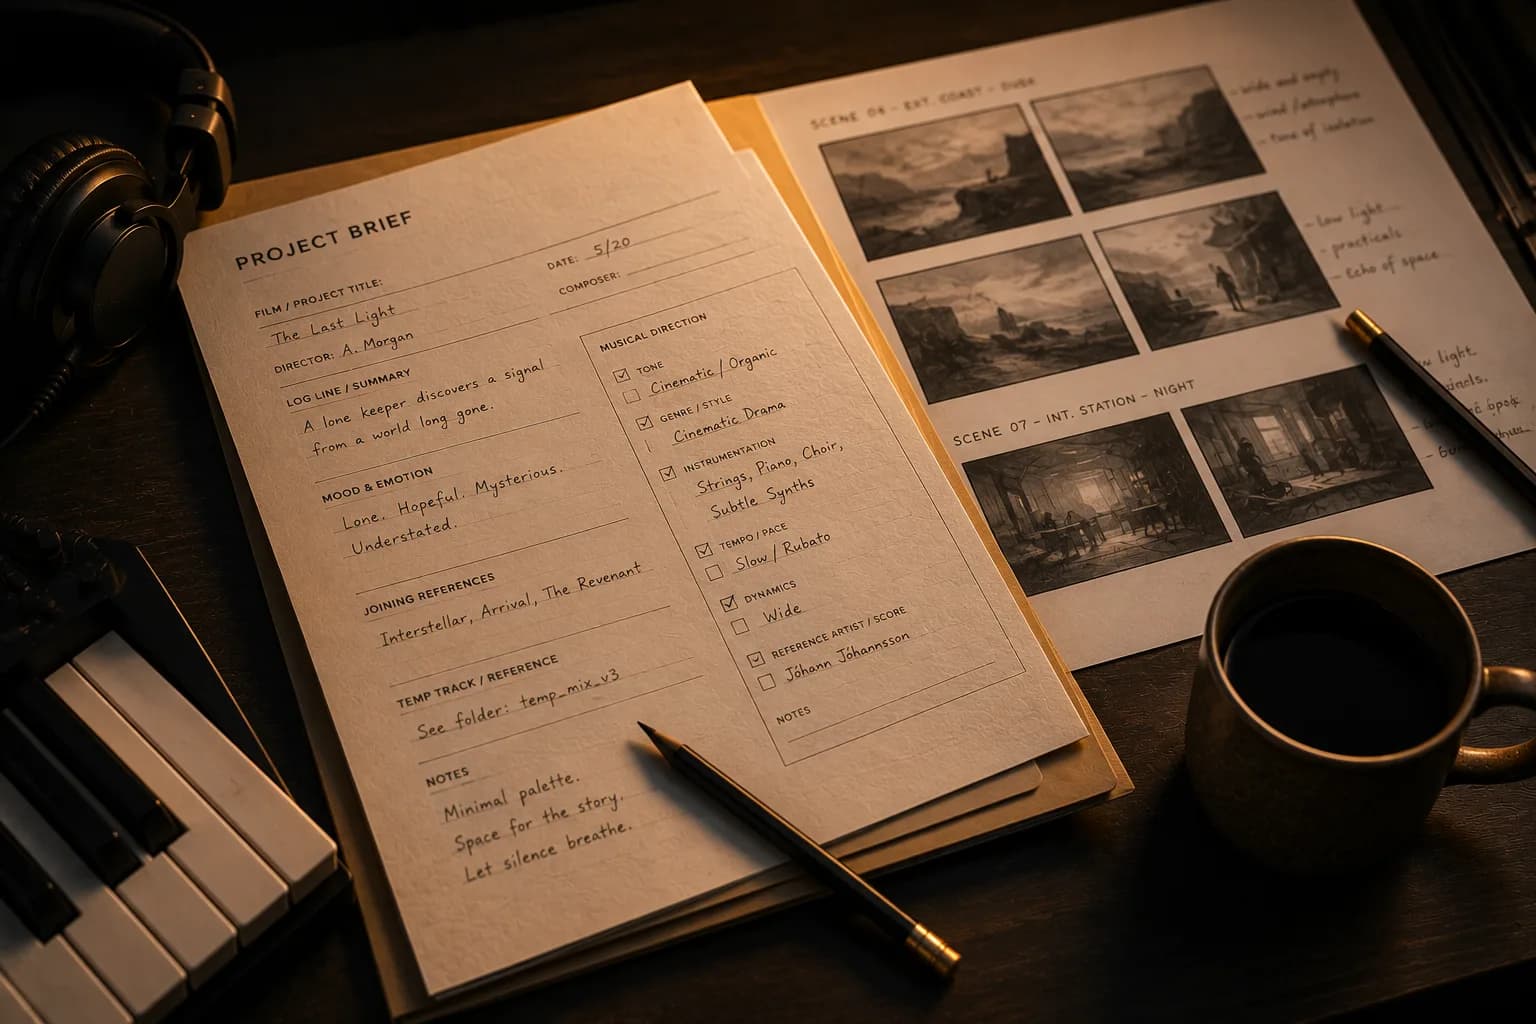 PROJECT BRIEF
FILM / PROJECT TITLE:
The Last Light
DATE: 5/20
DIRECTOR: A. Morgan
COMPOSER:
LOG LINE / SUMMARY
A lone keeper discovers a signal
from a world long gone.
MOOD & EMOTION
Lone. Hopeful. Mysterious.
Understated.
JOINING REFERENCES
Interstellar, Arrival, The Revenant
TEMP TRACK / REFERENCE
See folder: temp_mix_v3
NOTES
Minimal palette.
Space for the story.
Let silence breathe.
MUSICAL DIRECTION
TONE
Cinematic / Organic
GENRE / STYLE
Cinematic Drama
INSTRUMENTATION
Strings, Piano, Choir,
Subtle Synths
TEMPO / PACE
Slow / Rubato
DYNAMICS
Wide
REFERENCE ARTIST / SCORE
Jóhann Jóhannsson
NOTES
SCENE 06 - EXT. COAST -
- wide and empty
- wind / atmosphere
- tone of isolation
- Low light
- practicals
- Echo of space
SCENE 07 - INT. STATION - NIGHT
light